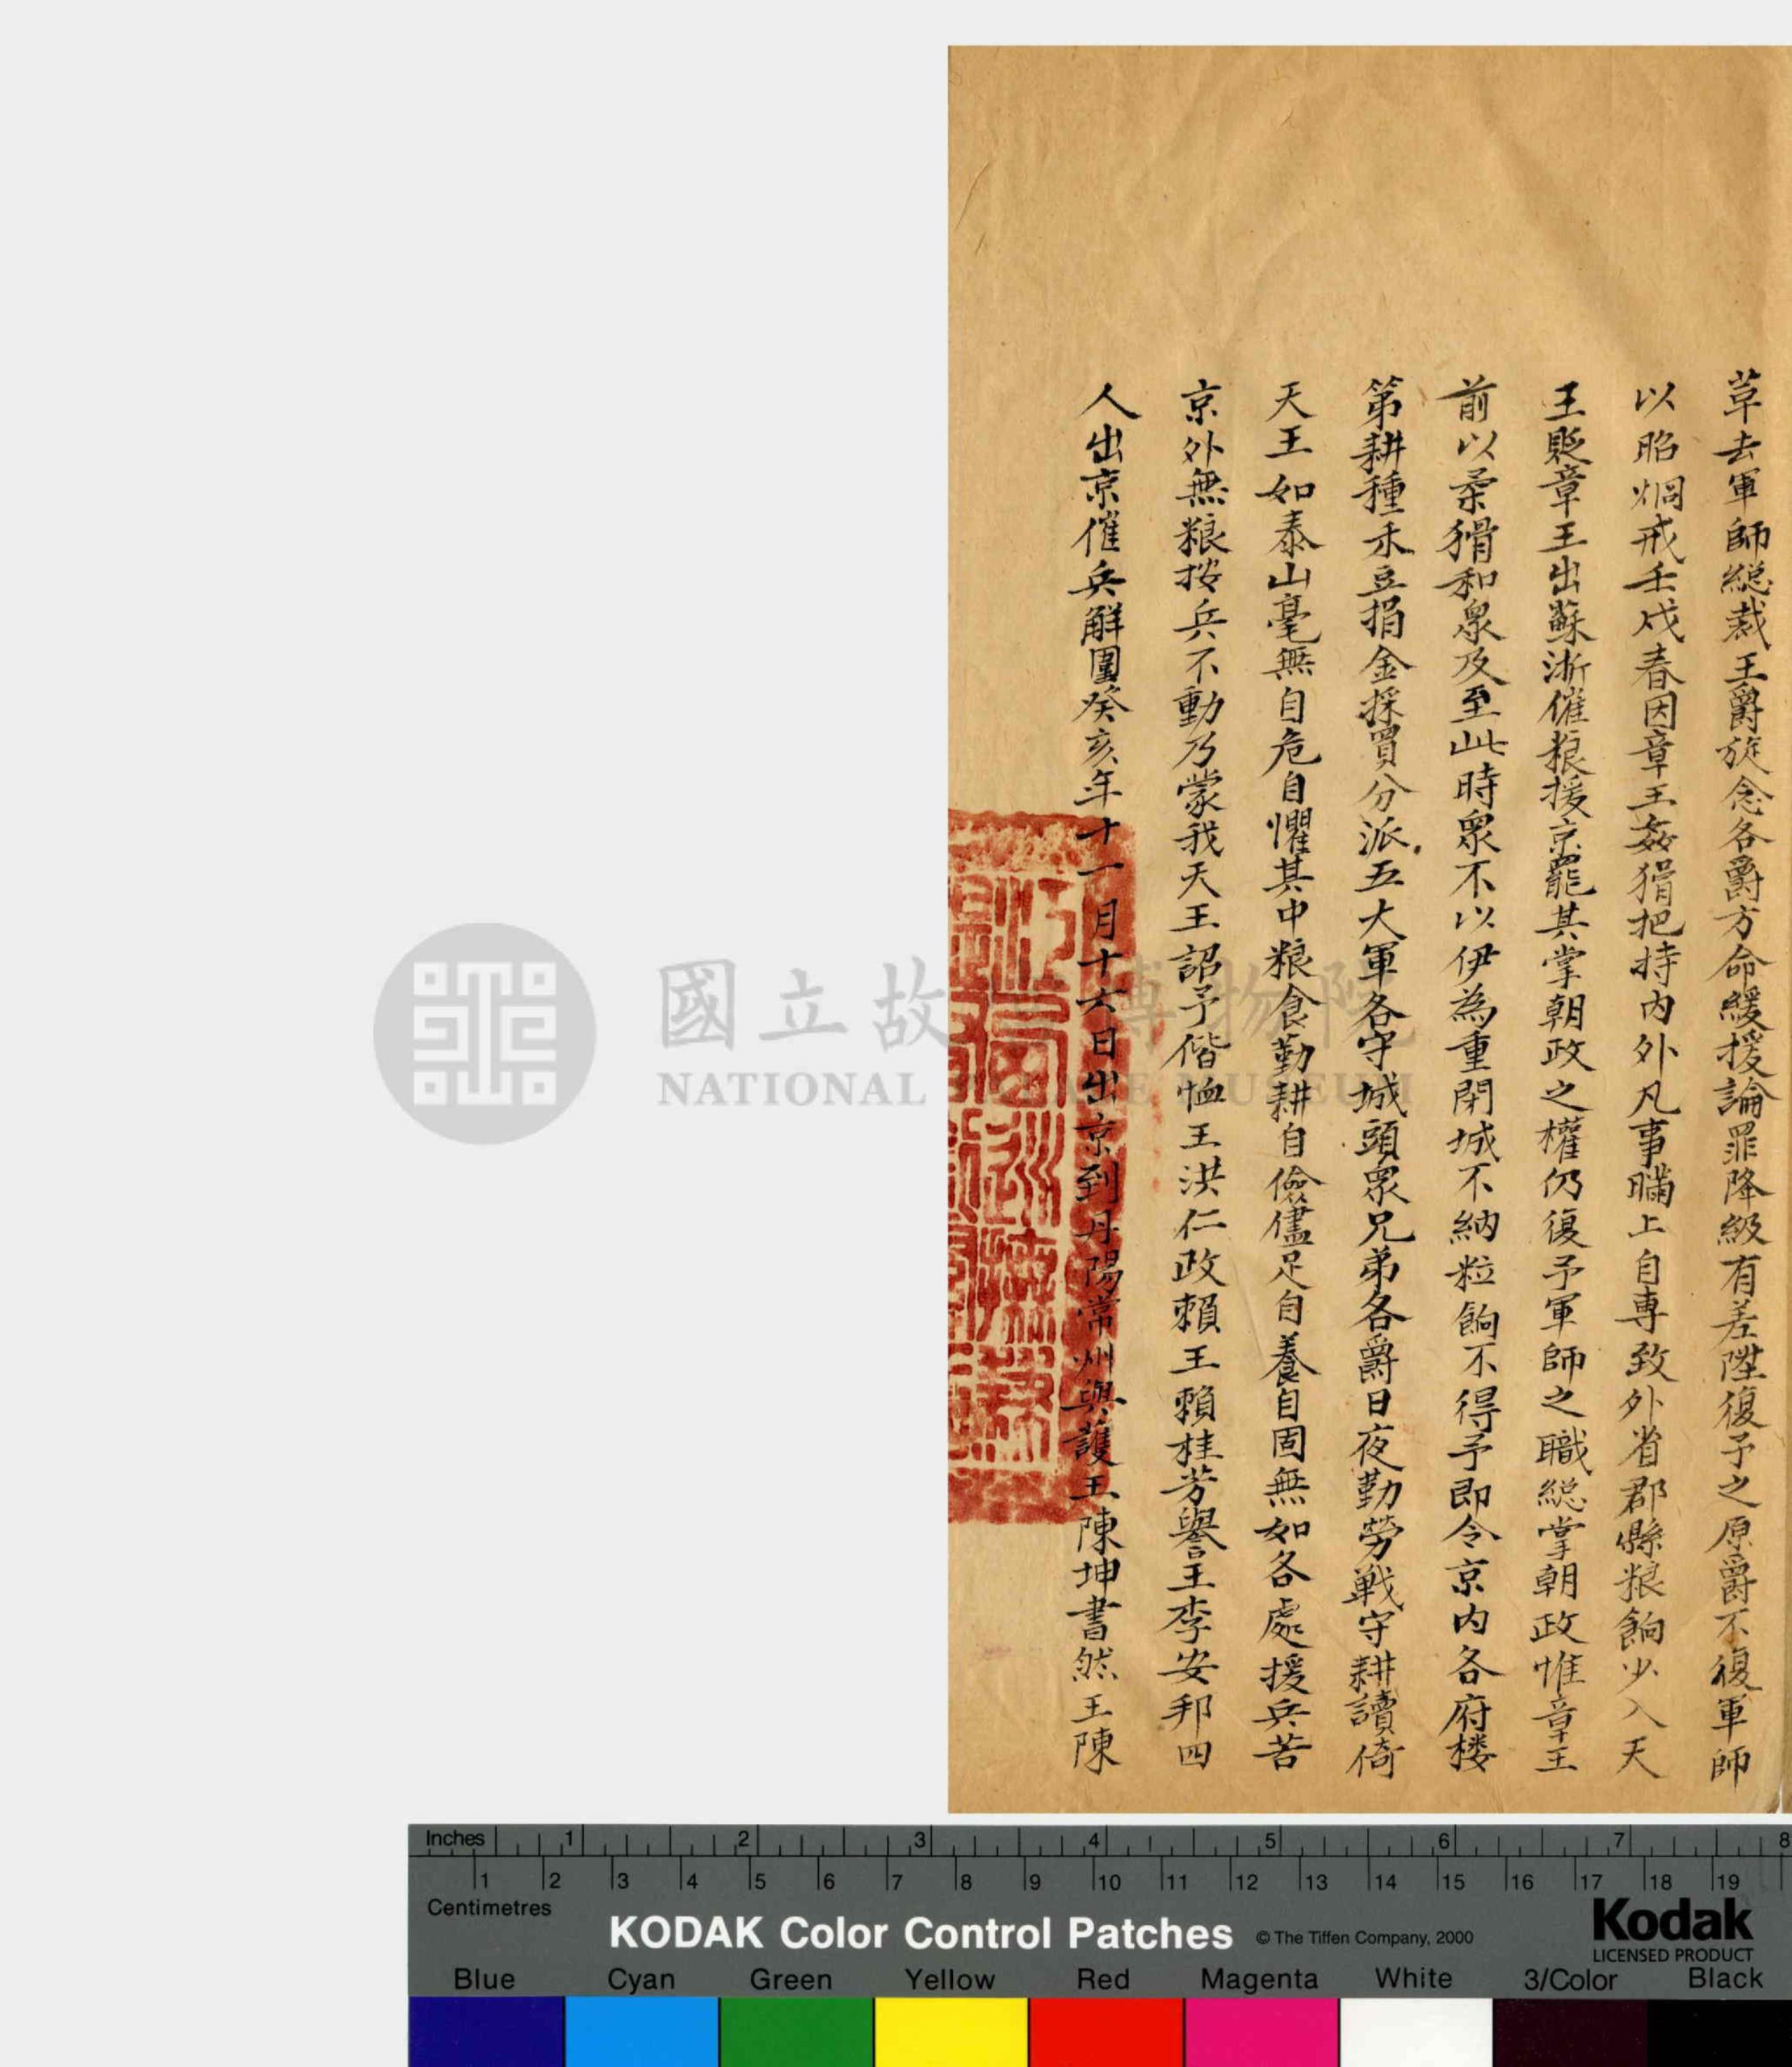 草去軍師總裁王爵旋念各爵方命緩援論罪降級有差陞復予之原爵不復軍師
以昭烱戒壬戌春因章王姦猾把持内外凡事瞞上自專致外省郡縣粮餉少入天
王貶章王出蘇浙催粮援京罷其掌朝政之權仍復予軍師之職總掌朝政惟章王
前以柔猾和衆及至此時衆不以伊為重閉城不納粒餉不得予即令京内各府楼
第耕種禾豆捐金採買分派五大軍各守城頭衆兄弟各爵日夜勤勞戰守耕讀倚
天王如泰山毫無自危自懼其中粮食勤耕自儉儘足自養自固無如各處援兵苦
京外無粮按兵不動乃蒙我天王詔予偕恤王洪仁政賴王賴桂芳譽王李安邦四
人出京催兵解圍癸亥年十一月十六日出京到丹陽常州與護王陳坤書然王陳
國立故宮博物院
NATIONAL PALACE MUSEUM
Inches 1 2 3 4 5 6 7 8
1 2 3 4 5 6 7 8 9 10 11 12 13 14 15 16 17 18 19
Centimetres
KODAK Color Control Patches
© The Tiffen Company, 2000
Kodak
LICENSED PRODUCT
Blue Cyan Green Yellow Red Magenta White 3/Color Black